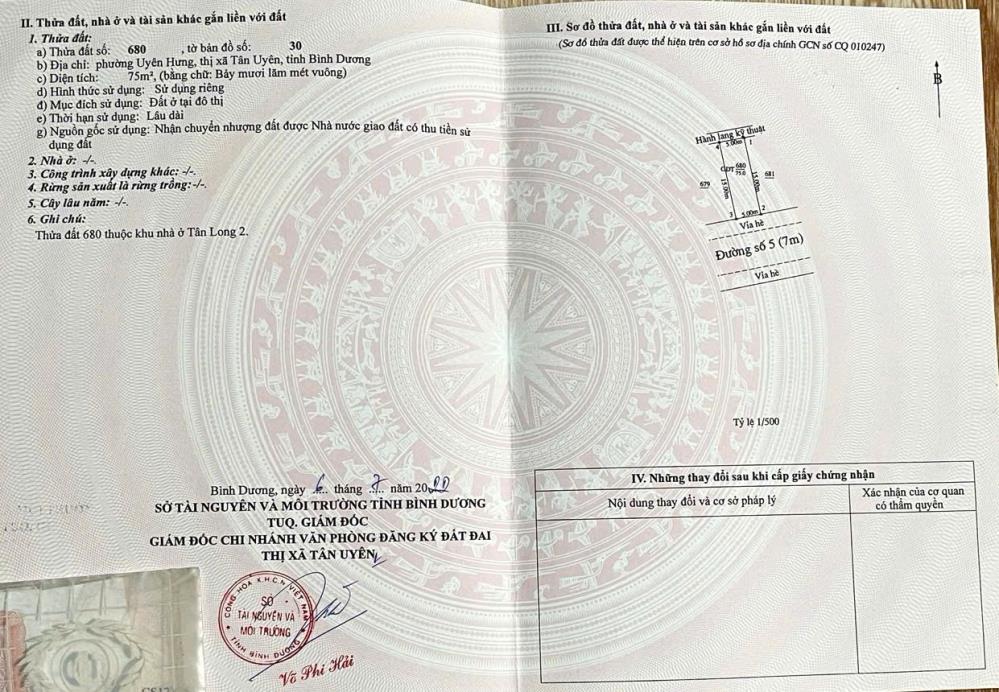 II. Thửa đất, nhà ở và tài sản khác gắn liền với đất
1. Thửa đất:
a) Thửa đất số: 680 , tờ bản đồ số: 30
b) Địa chỉ: phường Uyên Hưng, thị xã Tân Uyên, tỉnh Bình Dương
c) Diện tích: 75m², (bằng chữ: Bảy mươi lăm mét vuông)
d) Hình thức sử dụng: Sử dụng riêng
đ) Mục đích sử dụng: Đất ở tại đô thị
e) Thời hạn sử dụng: Lâu dài
g) Nguồn gốc sử dụng: Nhận chuyển nhượng đất được Nhà nước giao đất có thu tiền sử
dụng đất
2. Nhà ở: -/-.
3. Công trình xây dựng khác: -/-.
4. Rừng sản xuất là rừng trồng:-/-.
5. Cây lâu năm: -/-.
6. Ghi chú:
Thửa đất 680 thuộc khu nhà ở Tân Long 2.
Bình Dương, ngày 6 tháng 7 năm 2022
SỞ TÀI NGUYÊN VÀ MÔI TRƯỜNG TỈNH BÌNH DƯƠNG
TUQ. GIÁM ĐỐC
GIÁM ĐỐC CHI NHÁNH VĂN PHÒNG ĐĂNG KÝ ĐẤT ĐAI
THỊ XÃ TÂN UYÊN
CỘNG HÒA X.H.C.N VIỆT NAM
SỞ
TÀI NGUYÊN VÀ
MÔI TRƯỜNG
TỈNH BÌNH DƯƠNG
Võ Phi Hải
III. Sơ đồ thửa đất, nhà ở và tài sản khác gắn liền với đất
(Sơ đồ thửa đất được thể hiện trên cơ sở hồ sơ địa chính GCN số CQ 010247)
B
Hành lang kỹ thuật
4 5.00m 1
ODT 680
75.0
679
681
15.00m
15.00m
3 5.00m 2
Vỉa hè
Đường số 5 (7m)
Vỉa hè
Tỷ lệ 1/500
IV. Những thay đổi sau khi cấp giấy chứng nhận
Nội dung thay đổi và cơ sở pháp lý
Xác nhận của cơ quan
có thẩm quyền